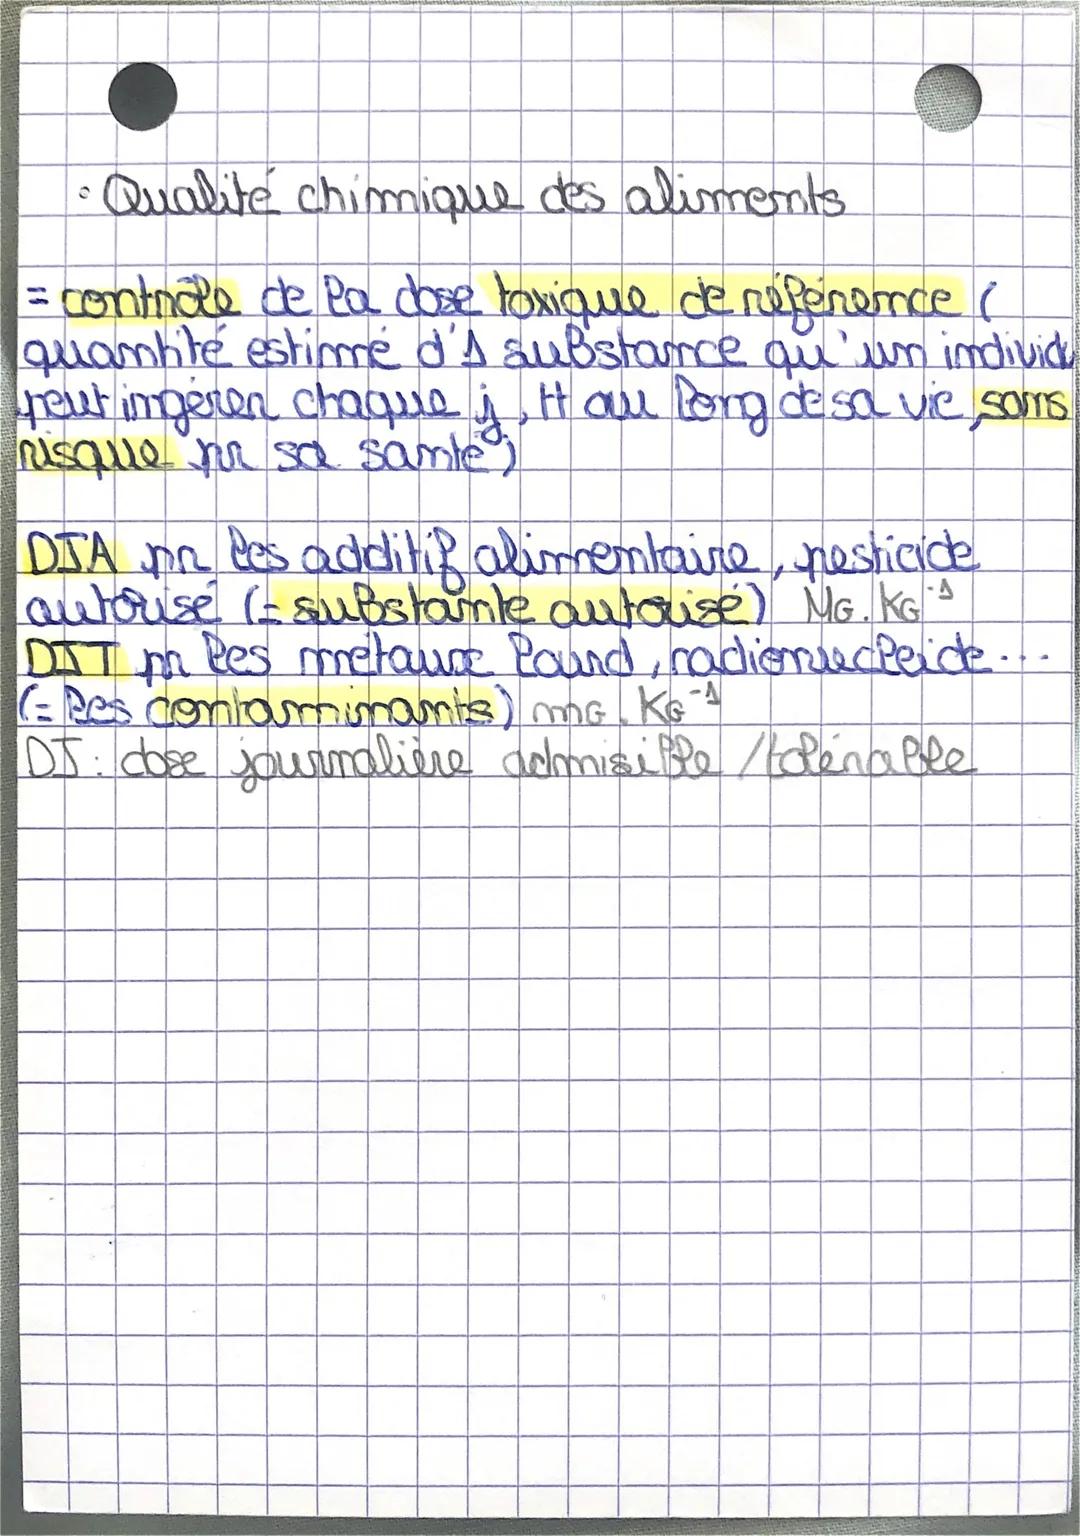 • Qualité chimique des aliments
= contrôle de la dose toxique de référence (
quantité estimé d'1 substance qu'un individu
peut ingérer chaque j, tt au long de sa vie, sans
risque pr sa santé)
DJA pr les additif alimentaire, pesticide
autorisé (= substante autorisé) MG.KG⁻¹
DJT pr les métaux lourd, radionuecleide...
(= les contaminants) mG.KG⁻¹
DJ: dose journalière admisible / tolérable